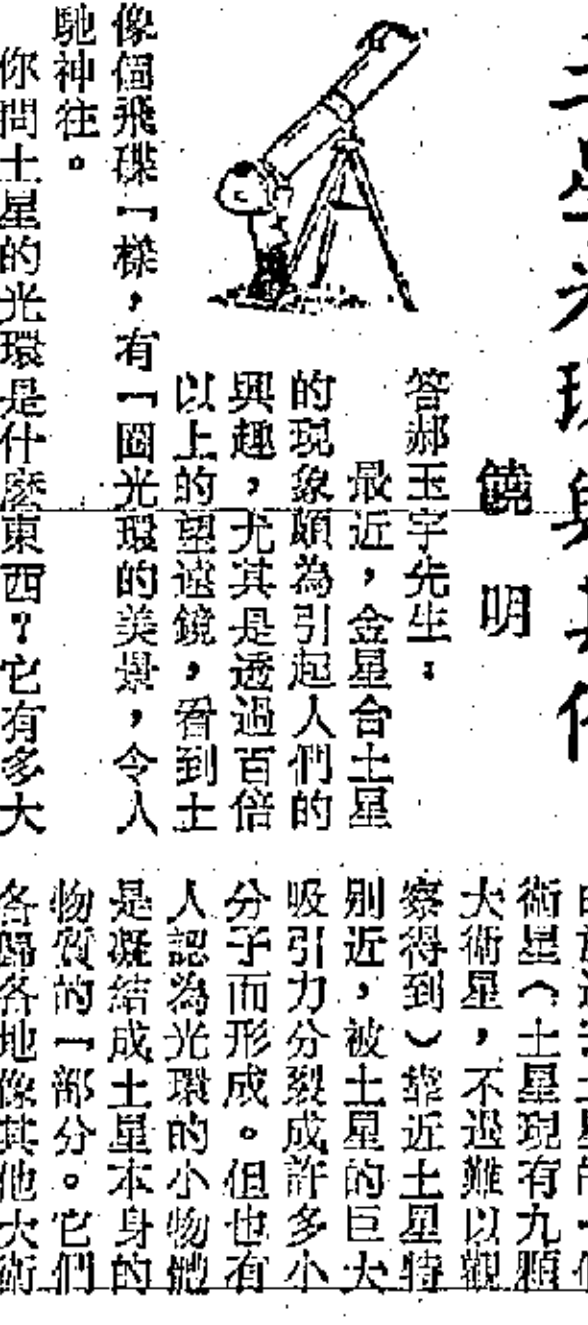 土星光環與其他
饒明
答郝玉宇先生：
最近，金星合土星
的現象頗為引起人們的
興趣，尤其是透過百倍
以上的望遠鏡，看到土
像個飛碟一樣，有一圈光環的美景，令人
馳神往。
你問土星的光環是什麼東西？它有多大
衛星（土星現有九顆
大衛星，不過難以觀
察得到）靠近土星特
別近，被土星的巨大
吸引力分裂成許多小
分子而形成。但也有
人認為光環的小物體
是凝結成土星本身的
物質的一部分。它們
各歸各地像其他大衛